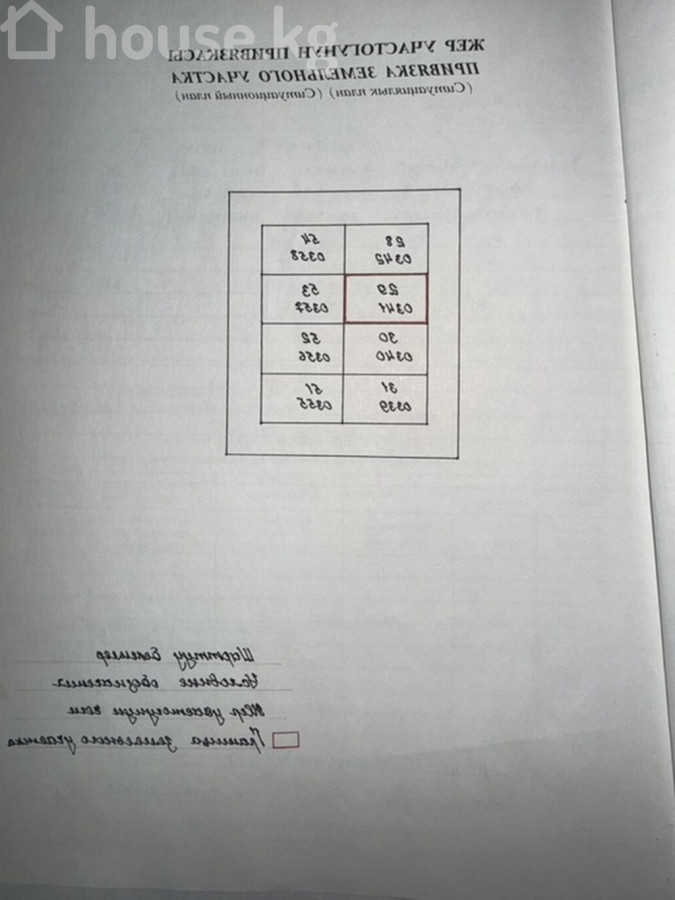 house.kg
ЖЕР УЧАСТОГУНУН ПРИВЯЗКАСЫ
ПРИВЯЗКА ЗЕМЕЛЬНОГО УЧАСТКА
(Ситуациялык план) (Ситуационный план)
28 54
0342 0358
29 53
0341 0357
30 52
0340 0356
31 51
0339 0355
Шарттуу белгилер
Условные обозначения
Жер участогунун чеги
Граница земельного участка